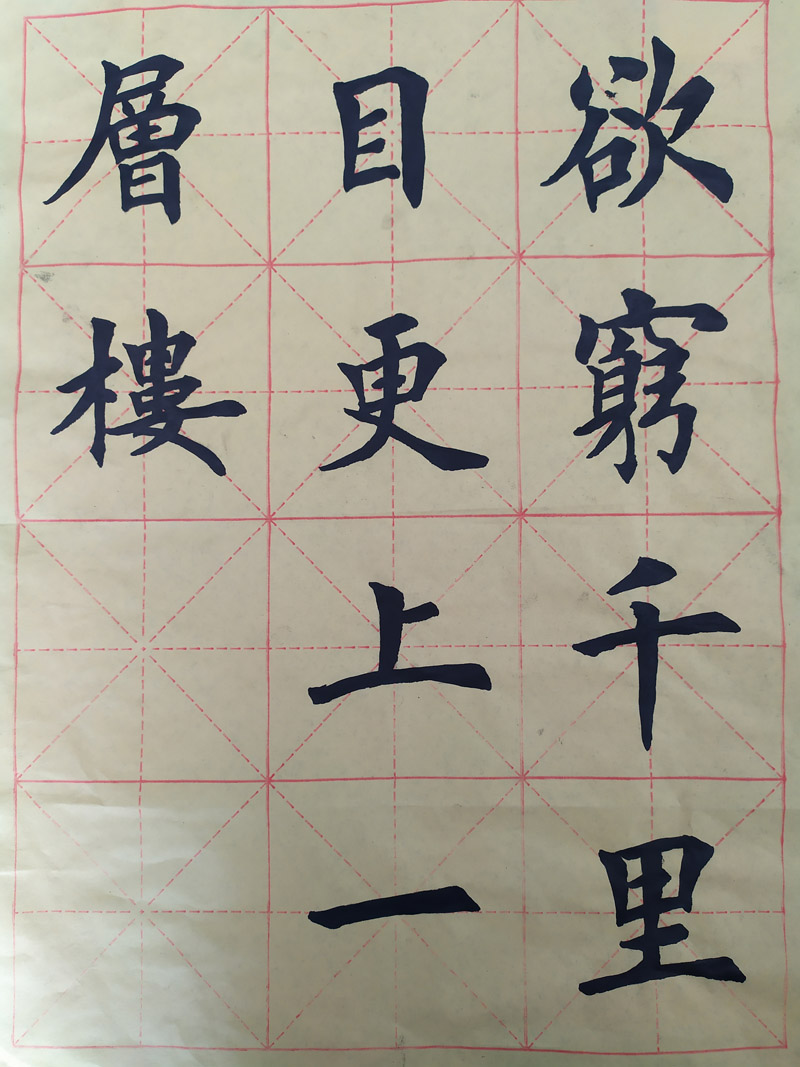 欲窮千里
目更上一
層樓